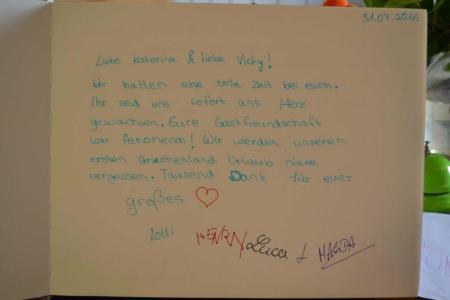 31.07.2016
Liebe Katerina & liebe Vicky!
Wir hatten eine tolle Zeit bei euch.
Ihr seid uns sofort ans Herz
gewachsen. Eure Gastfreundschaft
war fenomenal! Wir werden unseren
ersten Griechenland Urlaub niem
vergessen. Tausend Dank für euer
großes
Lotti HENRY Luca & MAGDA